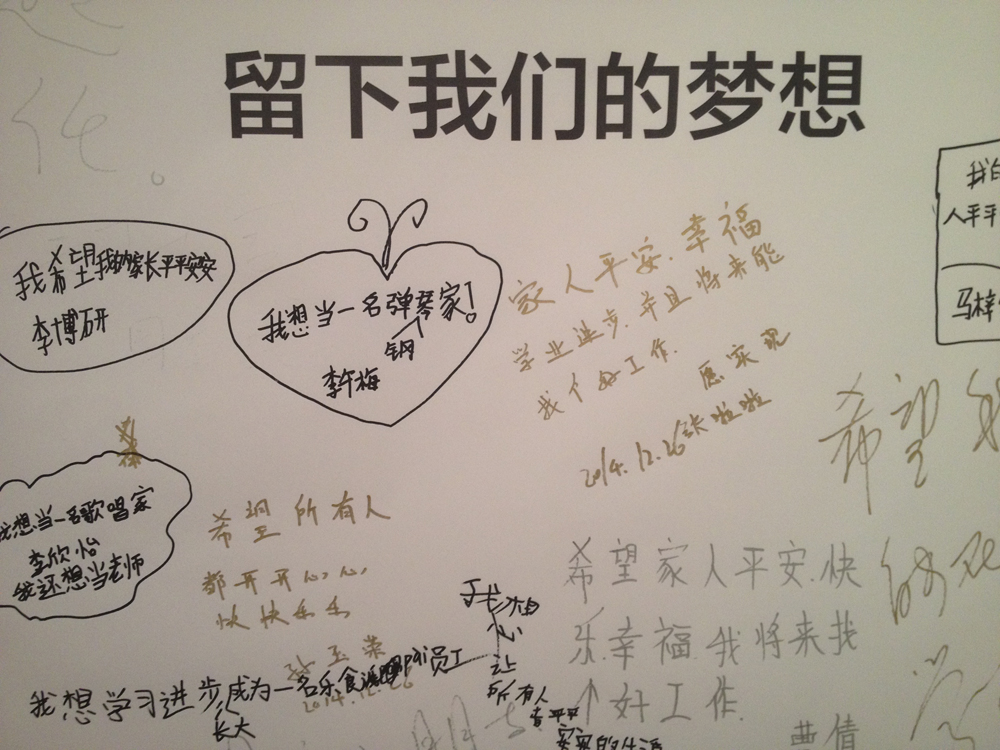 留下我们的梦想
我希望我的家长平平安安
李博研
我想当一名弹琴家!
钢
李午梅
家人平安.幸福
学业进步.并且将来能
找个好工作.
愿实现
2014.12.26
我的
人平平
马梓
我想当一名歌唱家
李欣怡
我还想当老师
希望所有人
都开开心心,
快快乐乐
玉荣
2014.12.26
希望
希望家人平安.快
乐.幸福.我将来找
个好工作.
曹倩
我想学习进步成为一名乐
员工
长大
我想
让
所有人